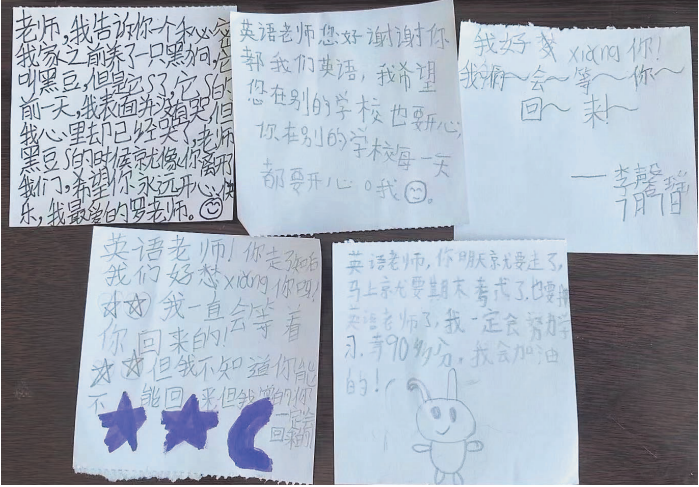 老师,我告诉你一个私心密
我家之前养了一只黑狗,
叫黑豆,但是它S了,它S的
前一天,我表面并没有哭,但
我心里却已经哭了,老师
黑豆S的时候就像你离开
我们,希望你永远开心快
乐,我最爱的罗老师。
英语老师您好谢谢你
教我们英语,我希望
您在别的学校也要开心,
你在别的学校每一天
都要开心。我
我好想xiang你!
我们~会~等~你~
回~来!~
——李馨瑠
7月7日
英语老师!你走了的话
我们好想xiang你吗!
我一直会等着
你回来的!
但我不知道你能
不能回来但我
一定会
回来的
英语老师,你明天就要走了,
马上就要期末考式了,也要
英语老师了,我一定会努力学
习,考90多分,我会加油
的!